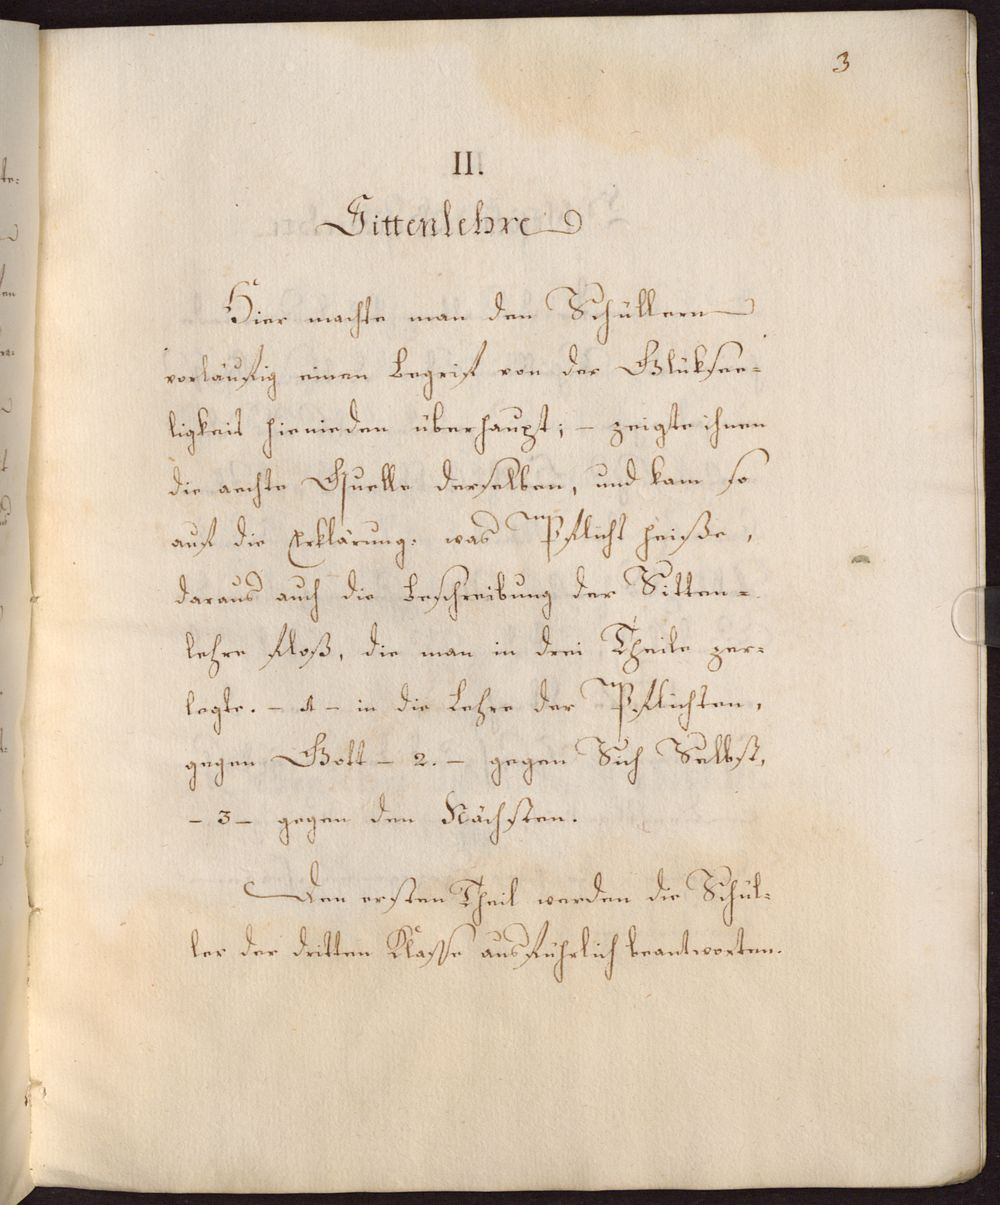 3
II.
Sittenlehre
Hier machte man den Schüllern
vorläufig einen Begrif von der Glüksee=
ligkeit hienieden überhaupt; – zeigte ihnen
die aechte Quelle derselben, und kam so
auf die Erklärung: was Pflicht heiße,
daraus auch die Beschreibung der Sitten=
lehre floß, die man in drei Theile zer=
legte. – 1 – in die Lehre der Pflichten,
gegen Gott – 2. – gegen Sich Selbst,
– 3 – gegen den Nächsten.
Den ersten Theil werden die Schül=
ler der dritten Klasse ausführlich beantworten.